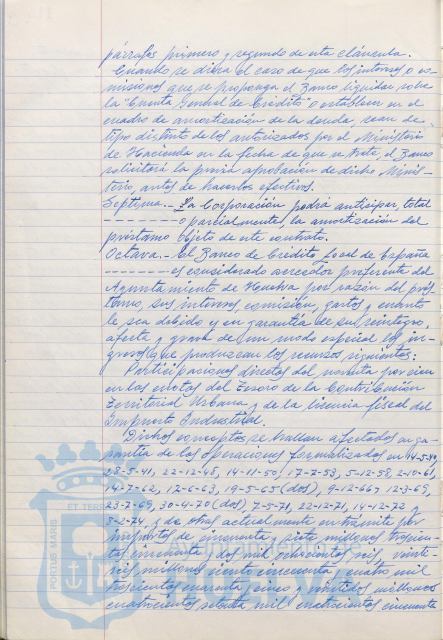 párrafos primero y segundo de esta cláusula.
Cuando se diera el caso de que los intereses o co-
misiones que se proponga el Banco liquidar sobre
la "Cuenta General de Crédito" o establecer en el
cuadro de amortización de la deuda, sean de
tipo distinto de los autorizados por el Ministerio
de Hacienda en la fecha de que se trate, el Banco
solicitará la previa aprobación de dicho Minis-
terio, antes de hacerlos efectivos.
Septima.- La Corporación podrá anticipar, total
- - - - - - - o parcialmente, la amortización del
préstamo objeto de este contrato.
Octava.- El Banco de Crédito Local de España
- - - - - - - es considerado acreedor preferente del
Ayuntamiento de Huelva por razón del prés-
tamo, sus intereses, comisión, gastos y cuanto
le sea debido y en garantía de su reintegro,
afecta y grava de un modo especial los in-
gresos que produzcan los recursos siguientes:
Participaciones directas del noventa por cien
en las cuotas del Tesoro de la Contribución
Territorial Urbana y de la licencia fiscal del
Impuesto Industrial.
Dichos conceptos se hallan afectados en ga-
rantía de las operaciones formalizadas en 14-5-
28-5-41, 22-12-48, 14-11-50, 17-7-53, 5-12-58, 2-10-61,
14-7-62, 12-6-63, 19-5-65 (dos), 9-12-66 y 12-3-69,
23-7-69, 30-4-70 (dos) 7-5-71, 22-12-71, 14-12-72 y
5-2-74 y de otras actualmente en trámite por
importes de cincuenta y siete millones trescien-
tos cincuenta y dos mil ochocientos seis, veinti-
seis millones ciento cincuenta y cuatro mil
trescientos cuarenta y cinco y veintidos millones
cuatrocientos setenta mil cuatrocientos cincuenta
PORTUS MARIS
ET TERR
HUELVA